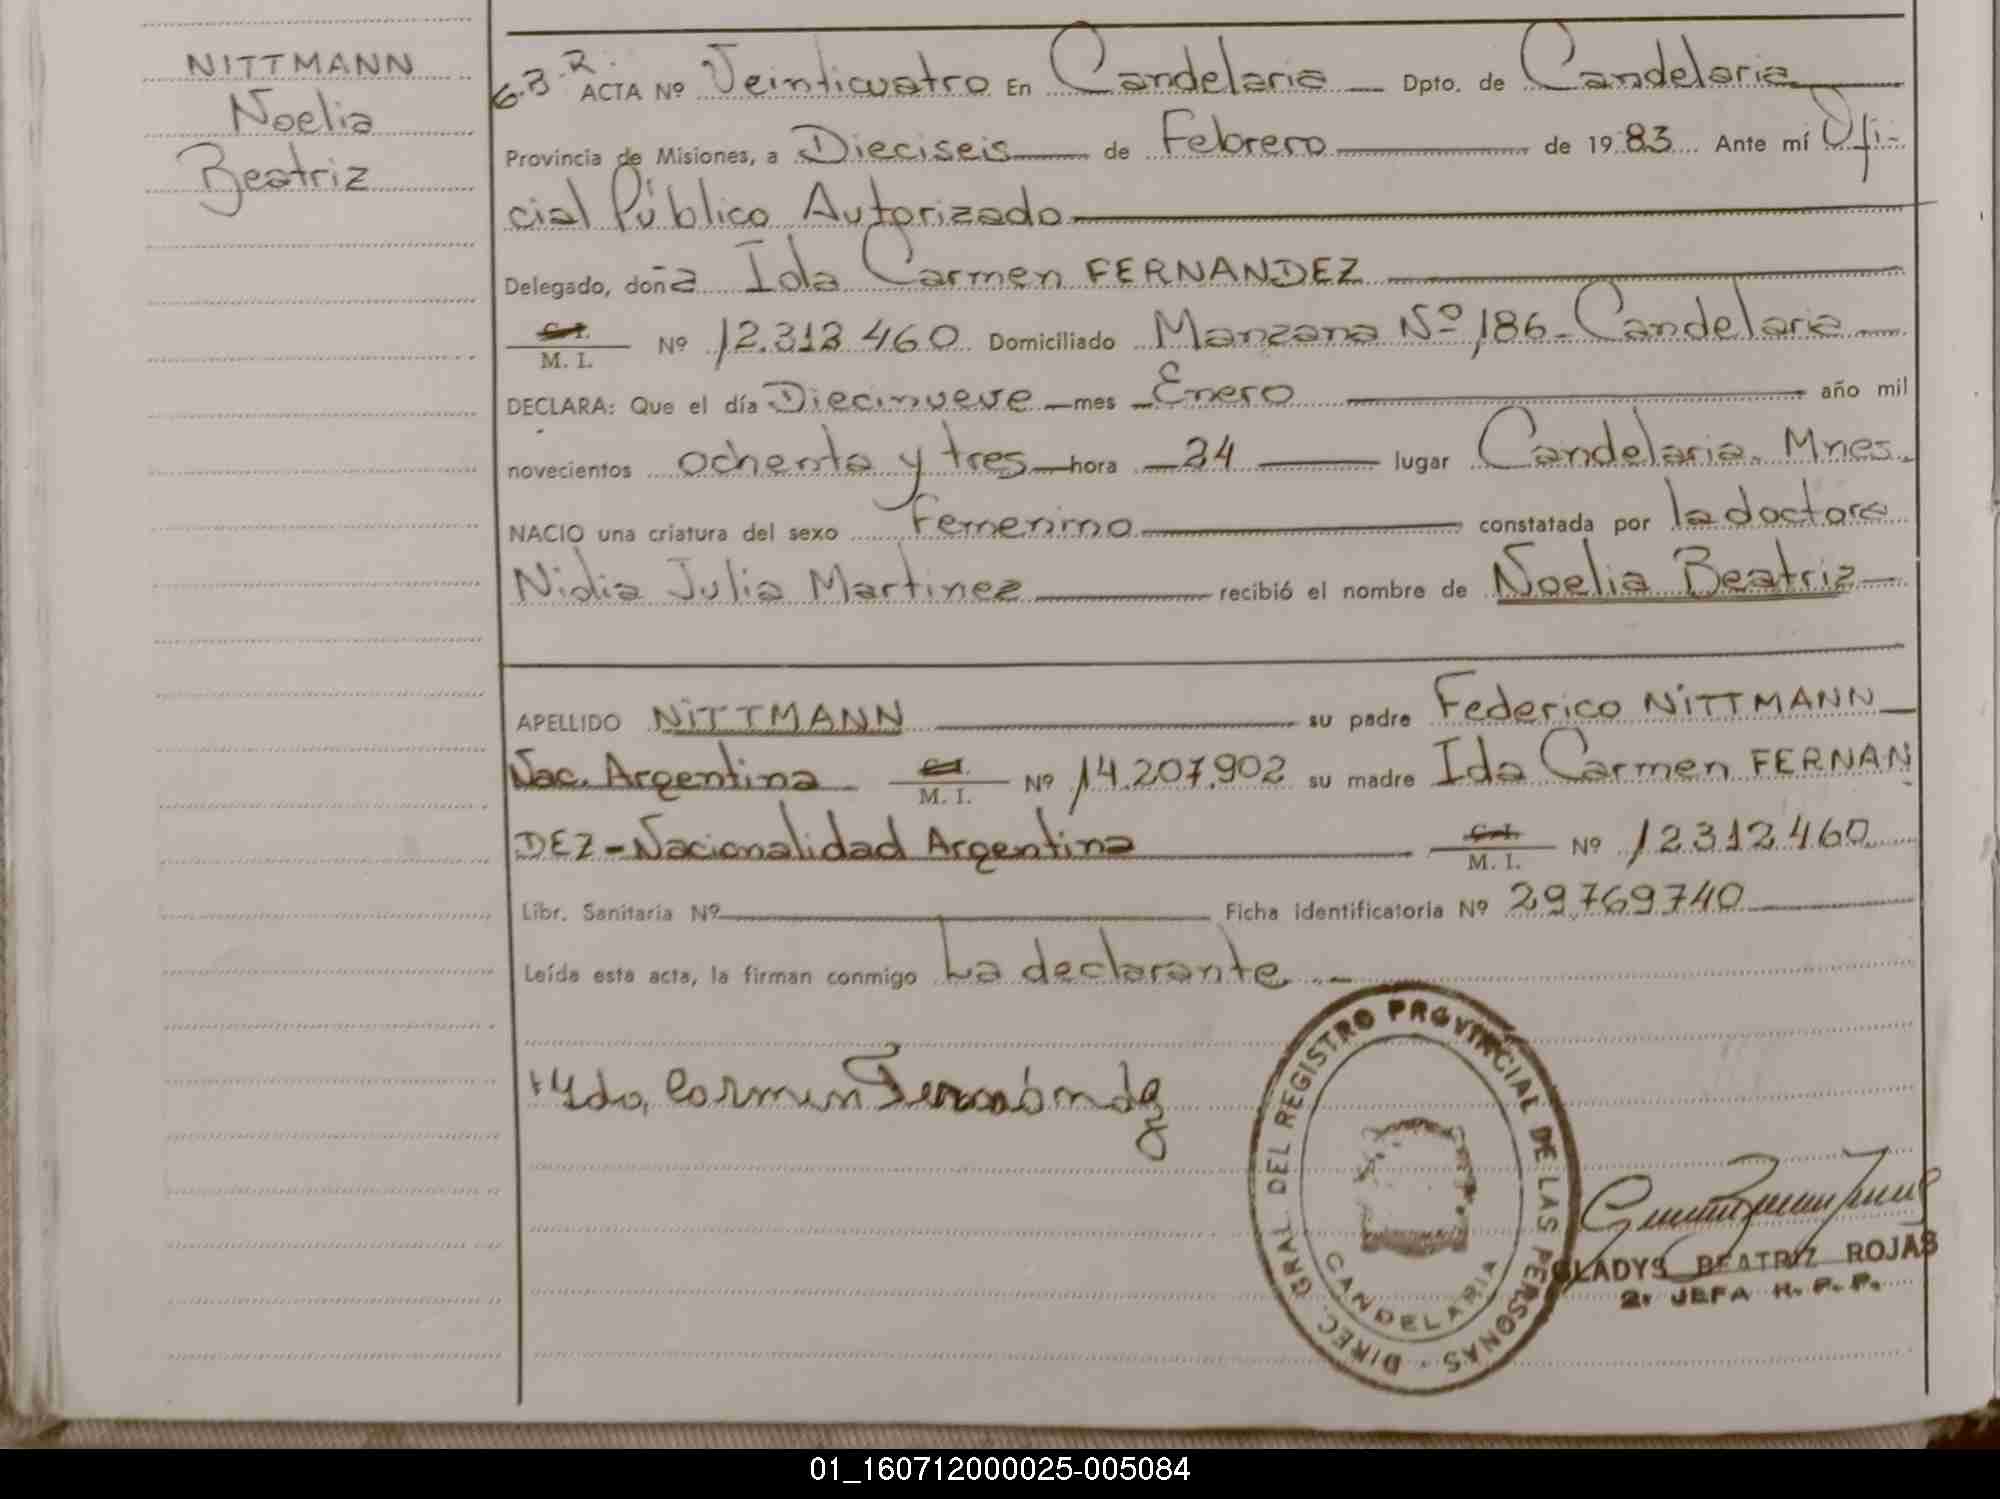 NITTMANN
Noelia
Beatriz
G.B.R.
ACTA Nº Veinticuatro En Candelaria Dpto. de Candelaria
Provincia de Misiones, a Dieciseis de Febrero de 1983 Ante mí Ofi-
cial Público Autorizado
Delegado, doña Ida Carmen FERNANDEZ
C. I.
M. I. Nº 12.312.460 Domiciliado Manzana Nº 186 - Candelaria
DECLARA: Que el día Diecinueve mes Enero año mil
novecientos ochenta y tres hora 24 lugar Candelaria. Mnes.
NACIO una criatura del sexo femenino constatada por la doctora
Nidia Julia Martinez recibió el nombre de Noelia Beatriz
APELLIDO NITTMANN su padre Federico NITTMANN
Nac. Argentina C. I. M. I. Nº 14.207.902 su madre Ida Carmen FERNAN
DEZ - Nacionalidad Argentina C. I. M. I. Nº 12.312.460
Libr. Sanitaria Nº Ficha identificatoria Nº 29.769.740
Leída esta acta, la firman conmigo La declarante.-
Yda, Carmen Fernández
DIREC. GRAL. DEL REGISTRO PROVINCIAL DE LAS PERSONAS
CANDELARIA
GLADYS BEATRIZ ROJAS
2. JEFA R. P. P.
01_160712000025-005084